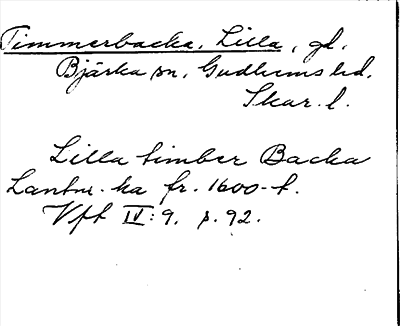 Timmerbacka, Lilla, gd.
Bjärka sn, Gudhems hd.
Skar. l.
Lilla timber Backa
Lantm. ka fr. 1600-t.
Vft IV: 9. s. 92.